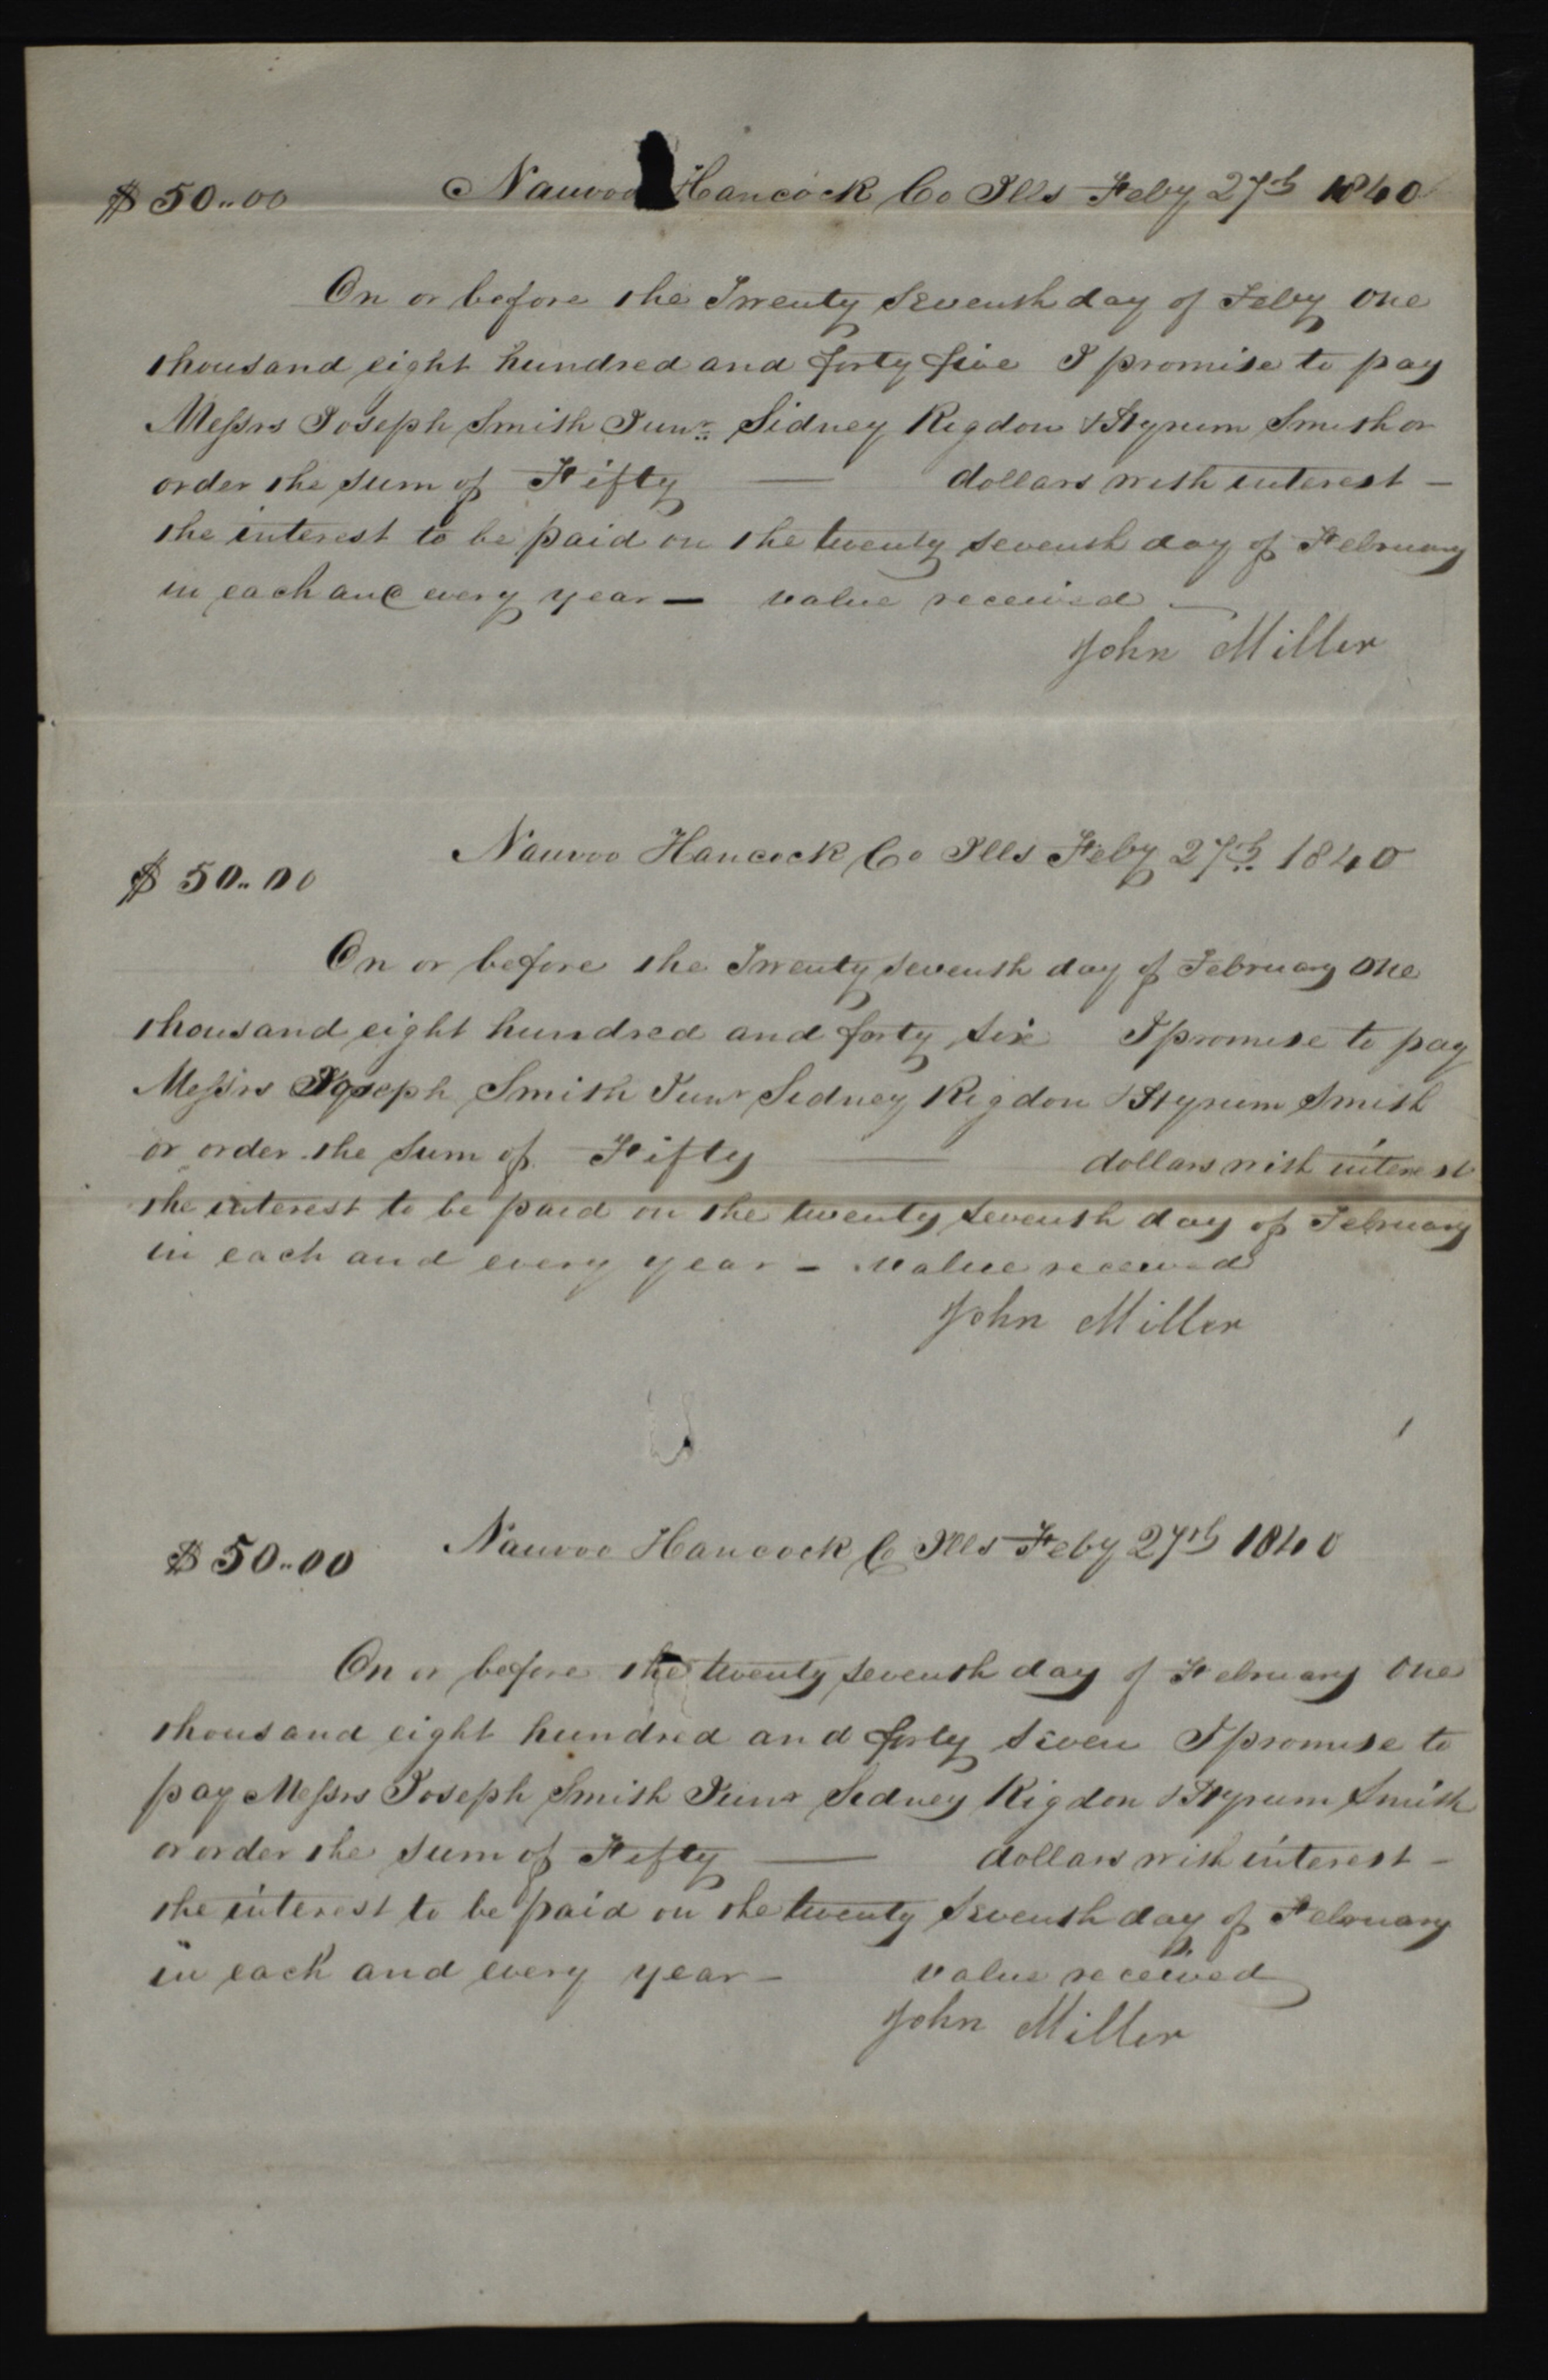 $50..00 Nauvoo Hancock Co Ills Feby 27th 1840
On or before the Twenty Seventh day of Feby One
thousand eight hundred and forty five I promise to pay
Messrs Joseph Smith Junr. Sidney Rigdon & Hyrum Smith or
order the sum of Fifty — dollars with interest —
the interest to be paid on the twenty seventh day of February
in each and every year — value received —
John Miller
Nauvoo Hancock Co Ills Feby 27th 1840
$50..00
On or before the Twenty Seventh day of February One
thousand eight hundred and forty six I promise to pay
Messrs Joseph Smith Junr Sidney Rigdon & Hyrum Smith
or order the sum of Fifty — dollars with interest
the interest to be paid on the twenty seventh day of February
in each and every year — value received
John Miller
$50..00 Nauvoo Hancock Co Ills Feby 27th 1840
On or before the twenty seventh day of February One
thousand eight hundred and forty seven I promise to
pay Messrs Joseph Smith Junr Sidney Rigdon & Hyrum Smith
or order the sum of Fifty — dollars with interest —
the interest to be paid on the twenty seventh day of February
in each and every year — value received
John Miller